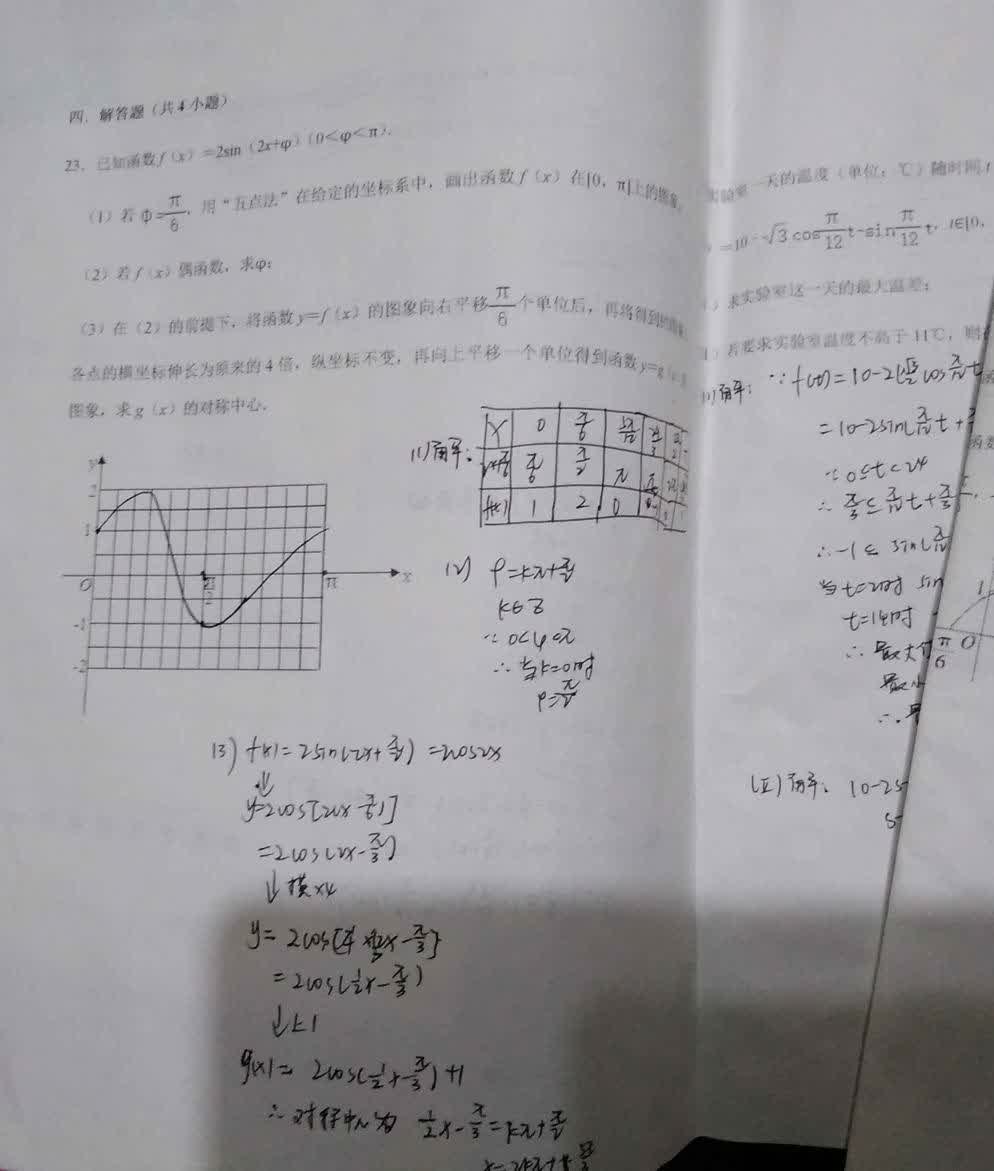 四．解答题（共4小题）
23．已知函数f（x）=2sin（2x+φ）（0<φ<π）．
（1）若φ=π/6，用“五点法”在给定的坐标系中，画出函数f（x）在[0，π]上的图象．
（2）若f（x）偶函数，求φ；
（3）在（2）的前提下，将函数y=f（x）的图象向右平移π/6个单位后，再将得到的图象
各点的横坐标伸长为原来的4倍，纵坐标不变，再向上平移一个单位得到函数y=g（x）
图象，求g（x）的对称中心．
(1)解：
x 0 π/6
2x+π/6 π/6 π/2 π
f(x) 1 2 0
y
2
1
0 π/2 π x
-1
-2
(2) φ=kπ+π/2
k∈Z
∵0<φ<π
∴当k=0时
φ=π/2
(3) f(x)=2sin(2x+π/2)=2cos2x
↓
y=2cos[2(x-π/6)]
=2cos(2x-π/3)
↓横×4
y=2cos[
=2cos(1/2x-π/3)
↓上1
g(x)=2cos(1/2x-π/3)+1
∴对称中心为 1/2x-π/3=kπ+π/2
实验室一天的温度（单位：℃）随时间t
=10-√3cosπ/12t-sinπ/12t，t∈[0，
）求实验室这一天的最大温差；
）若要求实验室温度不高于11℃，则
(1)解：∵f(t)=10-2(√3/2cosπ/12t
=10-2sin(π/12t+
∵0≤t<24
∴π/3≤π/12t+π/3
∴-1≤sin(π/12
当t=2时 sin
t=14时
∴最大
最小
∴
(Ⅱ)解：10-2s
s
函数
1
π/6 O